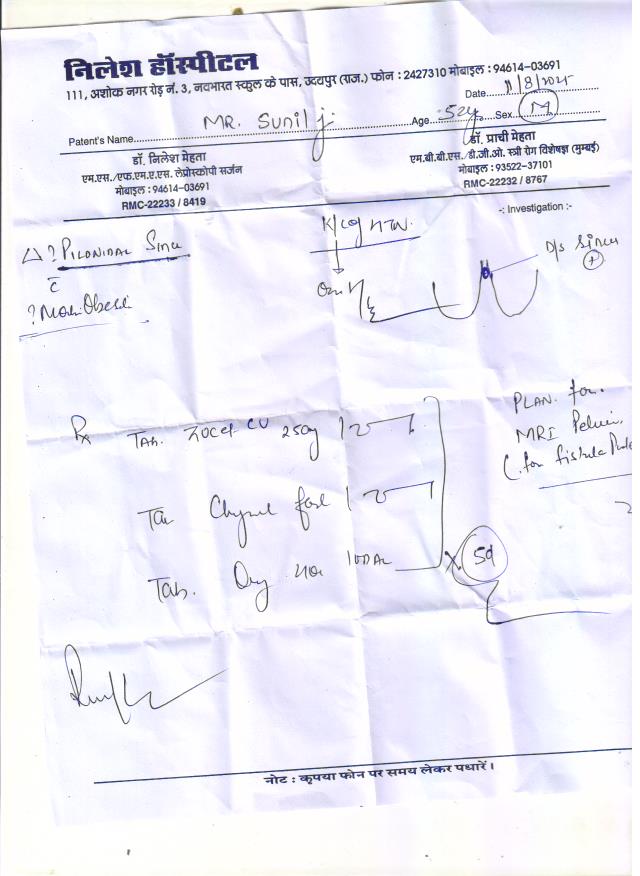 निलेश हॉस्पीटल
111, अशोक नगर रोड़ नं. 3, नवभारत स्कुल के पास, उदयपुर (राज.) फोन : 2427310 मोबाइल : 94614-03691
Date 11/8/2025
Patent's Name MR. Sunil j. Age 52y Sex M
डॉ. निलेश मेहता
एम.एस./एफ.एम.ए.एस. लेप्रोस्कोपी सर्जन
मोबाइल : 94614-03691
RMC-22233 / 8419
डॉ. प्राची मेहता
एम.बी.बी.एस./डी.जी.ओ. स्त्री रोग विशेषज्ञ (मुम्बई)
मोबाइल : 93522-37101
RMC-22232 / 8767
-: Investigation :-
K/c/o HTN.
△ ? PILONIDAL Sinus
c̄
D/s sinus
+
PLAN for.
MRI Pelvis.
(for fistula
Rx Tab. ZOCEF CV 250g 1
Tab Chymo fort 1
Tab. 100D
x 5d
नोट : कृपया फोन पर समय लेकर पधारें।